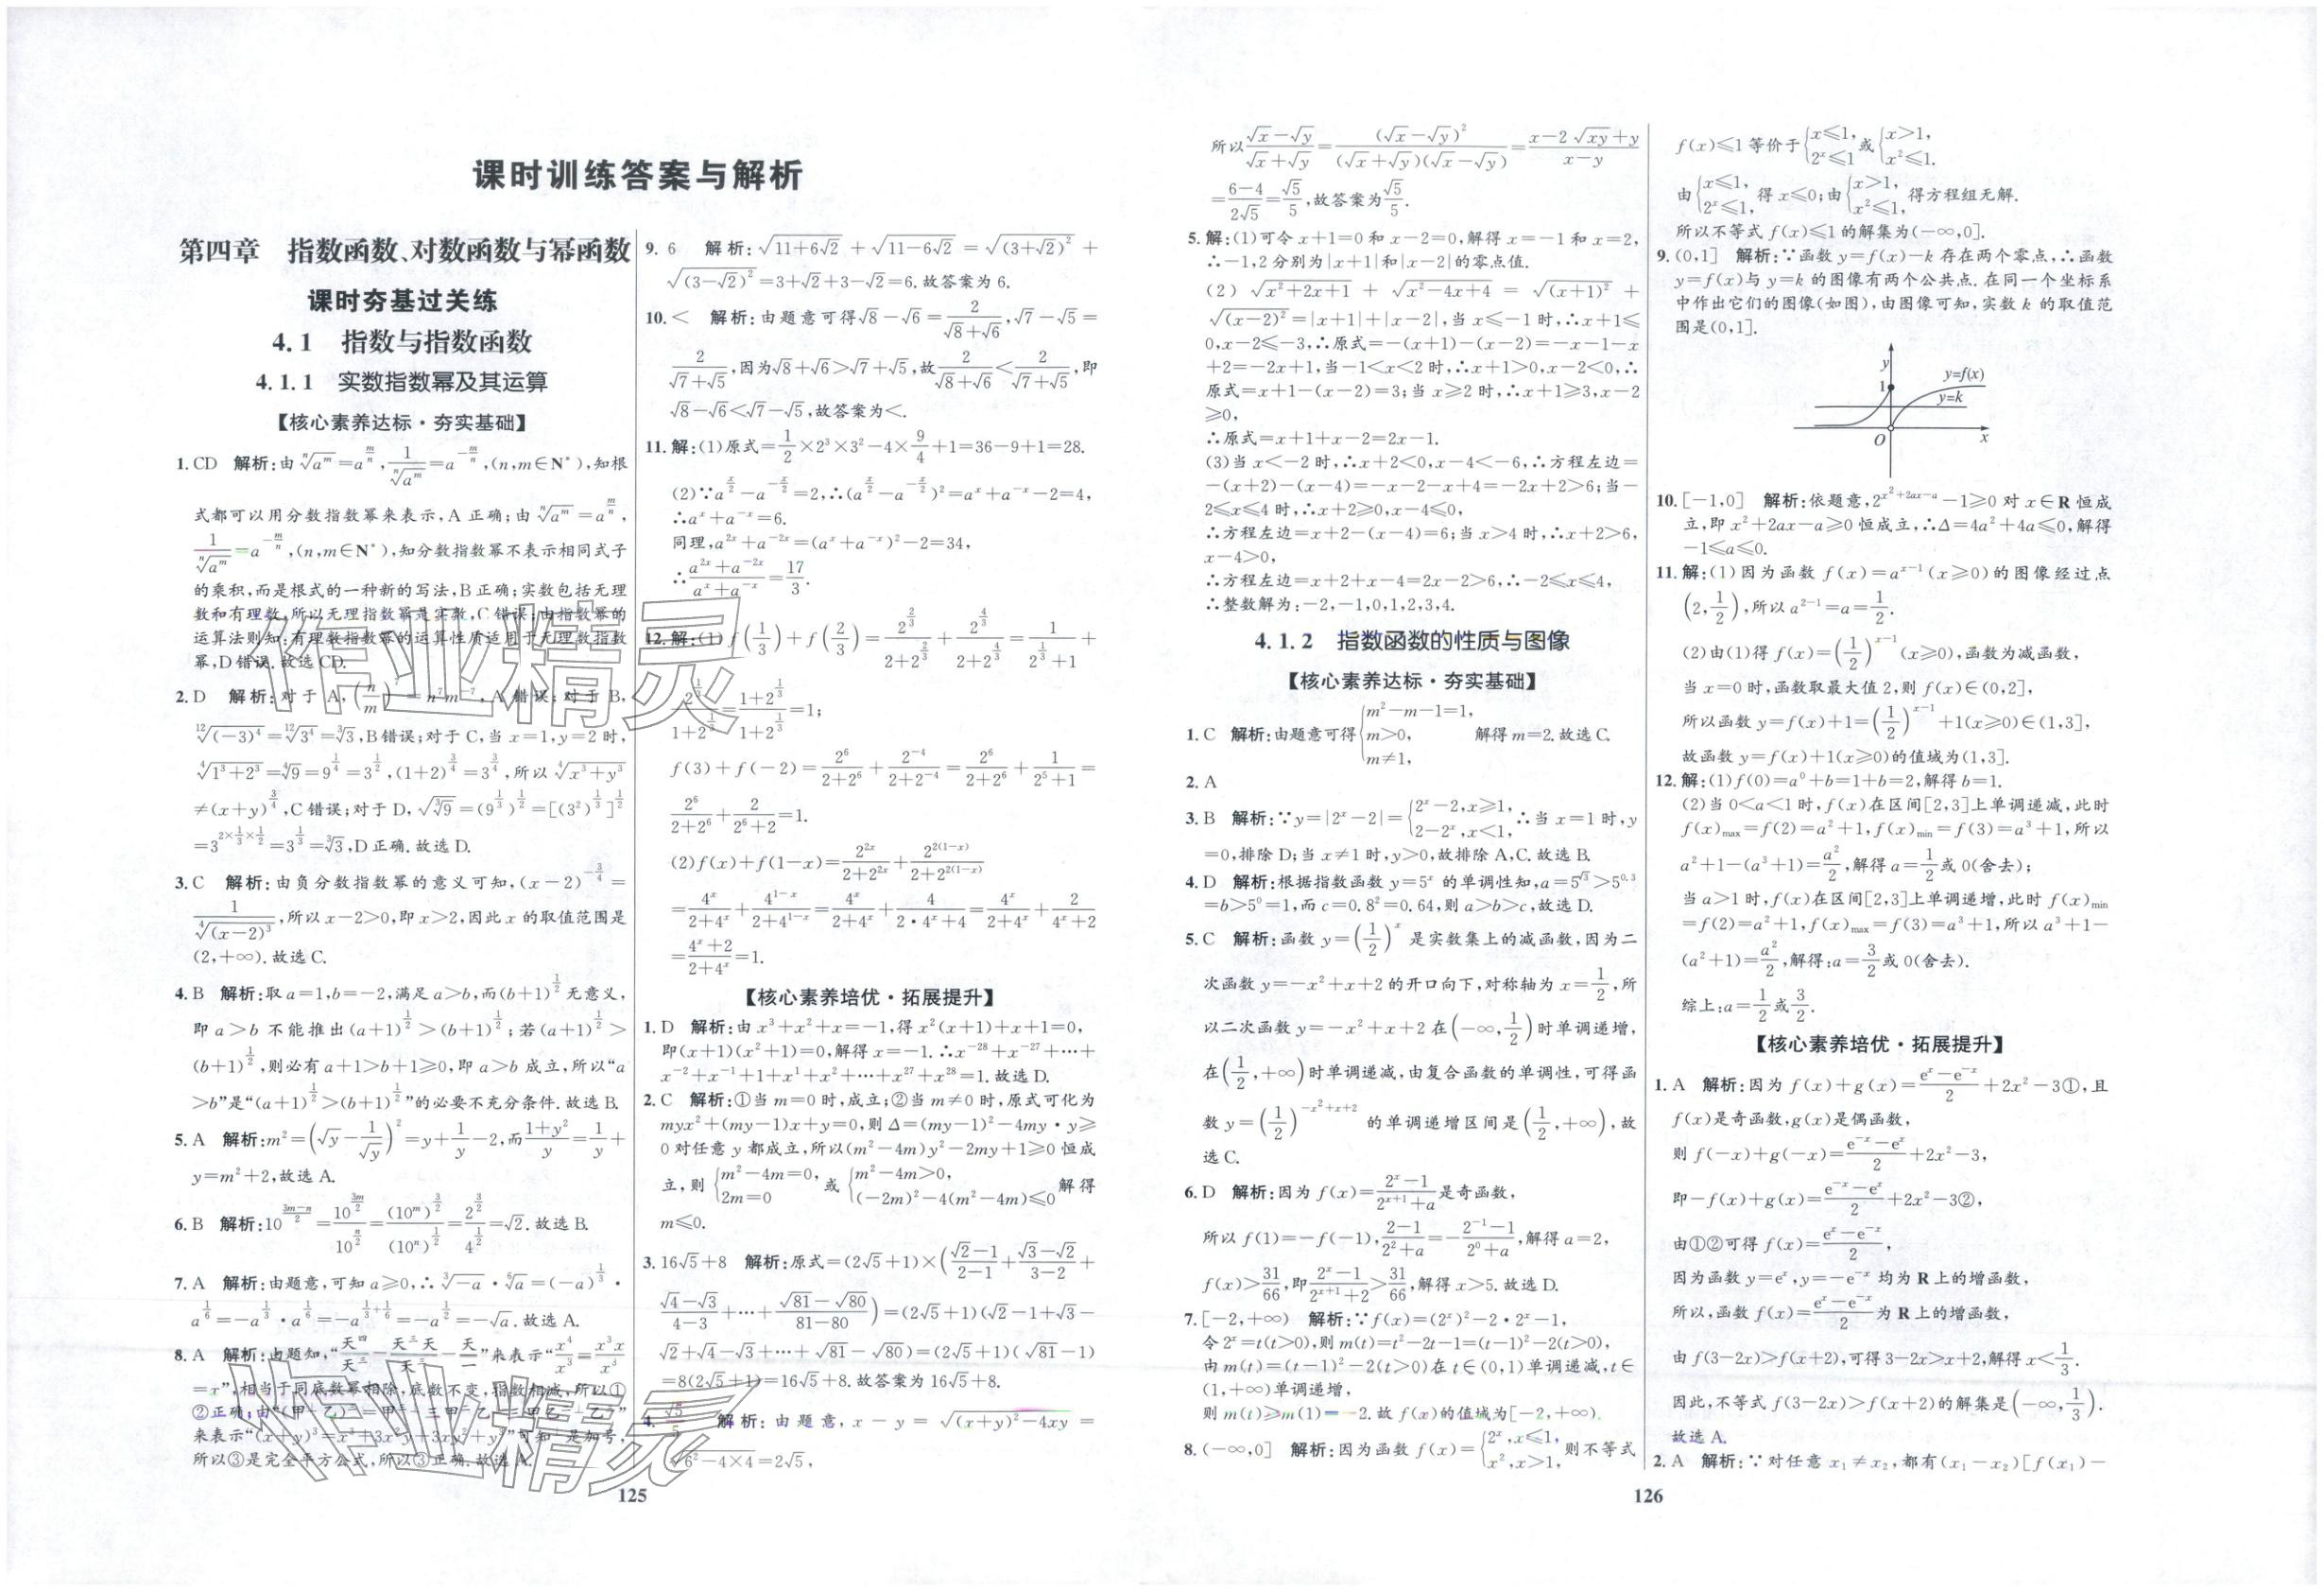 课时训练答案与解析
第四章 指数函数、对数函数与幂函数
课时夯基过关练
4.1 指数与指数函数
4.1.1 实数指数幂及其运算
【核心素养达标·夯实基础】
1. CD 解析:由 $\sqrt[n]{a^m}=a^{\frac{m}{n}},\frac{1}{\sqrt[n]{a^m}}=a^{-\frac{m}{n}}$,(n,m∈N*),知根
式都可以用分数指数幂来表示,A 正确;由 $\sqrt[n]{a^m}=a^{\frac{m}{n}}$,
$\frac{1}{\sqrt[n]{a^m}}=a^{-\frac{m}{n}}$,(n,m∈N*),知分数指数幂不表示相同式子
的乘积,而是根式的一种新的写法,B 正确;实数包括无理
数和有理数,所以无理指数幂是实数,C 错误;由指数幂的
运算法则知:有理数指数幂的运算性质适用于无理数指数
幂,D 错误.故选 CD.
2. D 解析:对于 A, $(\frac{n}{m})^7=n^7m^{-7}$,A 错误;对于 B,
$\sqrt[12]{(-3)^4}=\sqrt[12]{3^4}=\sqrt[3]{3}$,B 错误;对于 C,当 x=1,y=2 时,
$\sqrt[4]{1^3+2^3}=\sqrt[4]{9}=9^{\frac14}=3^{\frac12},(1+2)^{\frac34}=3^{\frac34}$,所以 $\sqrt[4]{x^3+y^3}$
$\neq(x+y)^{\frac34}$,C 错误;对于 D, $\sqrt{\sqrt[3]{9}}=(9^{\frac13})^{\frac12}=[(3^2)^{\frac13}]^{\frac12}$
$=3^{2\times\frac13\times\frac12}=3^{\frac13}=\sqrt[3]{3}$,D 正确.故选 D.
3. C 解析:由负分数指数幂的意义可知,$(x-2)^{-\frac34}=$
$\frac{1}{\sqrt[4]{(x-2)^3}}$,所以 x-2>0,即 x>2,因此 x 的取值范围是
(2,+∞).故选 C.
4. B 解析:取 a=1,b=-2,满足 a>b,而$(b+1)^{\frac12}$无意义,
即 a>b 不能推出$(a+1)^{\frac12}>(b+1)^{\frac12}$;若$(a+1)^{\frac12}>$
$(b+1)^{\frac12}$,则必有 a+1>b+1≥0,即 a>b 成立,所以“a
>b”是“$(a+1)^{\frac12}>(b+1)^{\frac12}$”的必要不充分条件.故选 B.
5. A 解析:$m^2=(\sqrt y-\frac{1}{\sqrt y})^2=y+\frac1y-2$,而$\frac{1+y^2}{y}=\frac1y+$
$y=m^2+2$,故选 A.
6. B 解析:$10^{\frac{3m-n}{2}}=\frac{10^{\frac{3m}{2}}}{10^{\frac n2}}=\frac{(10^m)^{\frac32}}{(10^n)^{\frac12}}=\frac{2^{\frac32}}{4^{\frac12}}=\sqrt2$.故选 B.
7. A 解析:由题意,可知 a≥0,∴$\sqrt[3]{-a}\cdot\sqrt[6]{a}=(-a)^{\frac13}\cdot$
$a^{\frac16}=-a^{\frac13}\cdot a^{\frac16}=-a^{\frac13+\frac16}=-a^{\frac12}=-\sqrt a$.故选 A.
8. A 解析:由题知,“$\frac{天^四}{天^三}=\frac{天^三天}{天^三}=\frac{天}{一}$”来表示“$\frac{x^4}{x^3}=\frac{x^3x}{x^3}$
=x”,相当于同底数幂相除,底数不变,指数相减,所以①
②正确;由
来表示“$(x+y)^3=x^3+3x^2y+3xy^2+y^3$”可知 是加号,
所以③是完全平方公式,所以③正确.故选 A.
9. 6 解析:$\sqrt{11+6\sqrt2}+\sqrt{11-6\sqrt2}=\sqrt{(3+\sqrt2)^2}+$
$\sqrt{(3-\sqrt2)^2}=3+\sqrt2+3-\sqrt2=6$.故答案为 6.
10. < 解析:由题意可得$\sqrt8-\sqrt6=\frac{2}{\sqrt8+\sqrt6},\sqrt7-\sqrt5=$
$\frac{2}{\sqrt7+\sqrt5}$,因为$\sqrt8+\sqrt6>\sqrt7+\sqrt5$,故$\frac{2}{\sqrt8+\sqrt6}<\frac{2}{\sqrt7+\sqrt5}$,即
$\sqrt8-\sqrt6<\sqrt7-\sqrt5$,故答案为<.
11. 解:(1)原式$=\frac12\times2^3\times3^2-4\times\frac94+1=36-9+1=28$.
(2)∵$a^{\frac x2}-a^{-\frac x2}=2$,∴$(a^{\frac x2}-a^{-\frac x2})^2=a^x+a^{-x}-2=4$,
∴$a^x+a^{-x}=6$.
同理,$a^{2x}+a^{-2x}=(a^x+a^{-x})^2-2=34$,
∴$\frac{a^{2x}+a^{-2x}}{a^x+a^{-x}}=\frac{17}{3}$.
12. 解:(1)$f(\frac13)+f(\frac23)=\frac{2^{\frac23}}{2+2^{\frac23}}+\frac{2^{\frac43}}{2+2^{\frac43}}=\frac{1}{2^{\frac13}+1}+$
$\frac{2^{\frac13}}{1+2^{\frac13}}=\frac{1+2^{\frac13}}{1+2^{\frac13}}=1$;
$f(3)+f(-2)=\frac{2^6}{2+2^6}+\frac{2^{-4}}{2+2^{-4}}=\frac{2^6}{2+2^6}+\frac{1}{2^5+1}=$
$\frac{2^6}{2+2^6}+\frac{2}{2^6+2}=1$.
(2)$f(x)+f(1-x)=\frac{2^{2x}}{2+2^{2x}}+\frac{2^{2(1-x)}}{2+2^{2(1-x)}}$
$=\frac{4^x}{2+4^x}+\frac{4^{1-x}}{2+4^{1-x}}=\frac{4^x}{2+4^x}+\frac{4}{2\cdot4^x+4}=\frac{4^x}{2+4^x}+\frac{2}{4^x+2}$
$=\frac{4^x+2}{2+4^x}=1$.
【核心素养培优·拓展提升】
1. D 解析:由 $x^3+x^2+x=-1$,得 $x^2(x+1)+x+1=0$,
即$(x+1)(x^2+1)=0$,解得 x=-1.∴$x^{-28}+x^{-27}+\cdots+$
$x^{-2}+x^{-1}+1+x^1+x^2+\cdots+x^{27}+x^{28}=1$.故选 D.
2. C 解析:①当 m=0 时,成立;②当 m≠0 时,原式可化为
$myx^2+(my-1)x+y=0$,则 $Δ=(my-1)^2-4my\cdot y≥$
0 对任意 y 都成立,所以$(m^2-4m)y^2-2my+1≥0$ 恒成
立,则$\begin{cases}m^2-4m=0,\\2m=0\end{cases}$ 或$\begin{cases}m^2-4m>0,\\(-2m)^2-4(m^2-4m)≤0\end{cases}$解得
m≤0.
3. $16\sqrt5+8$ 解析:原式$=(2\sqrt5+1)\times(\frac{\sqrt2-1}{2-1}+\frac{\sqrt3-\sqrt2}{3-2}+$
$\frac{\sqrt4-\sqrt3}{4-3}+\cdots+\frac{\sqrt{81}-\sqrt{80}}{81-80})=(2\sqrt5+1)(\sqrt2-1+\sqrt3-$
$\sqrt2+\sqrt4-\sqrt3+\cdots+\sqrt{81}-\sqrt{80})=(2\sqrt5+1)(\sqrt{81}-1)$
$=8(2\sqrt5+1)=16\sqrt5+8$.故答案为 $16\sqrt5+8$.
4. $\frac{\sqrt5}{5}$ 解析:由题意,$x-y=\sqrt{(x+y)^2-4xy}=$
$\sqrt{6^2-4\times4}=2\sqrt5$,
125
所以$\frac{\sqrt x-\sqrt y}{\sqrt x+\sqrt y}=\frac{(\sqrt x-\sqrt y)^2}{(\sqrt x+\sqrt y)(\sqrt x-\sqrt y)}=\frac{x-2\sqrt{xy}+y}{x-y}$
$=\frac{6-4}{2\sqrt5}=\frac{\sqrt5}{5}$,故答案为$\frac{\sqrt5}{5}$.
5. 解:(1)可令 x+1=0 和 x-2=0,解得 x=-1 和 x=2,
∴-1,2 分别为|x+1|和|x-2|的零点值.
(2)$\sqrt{x^2+2x+1}+\sqrt{x^2-4x+4}=\sqrt{(x+1)^2}+$
$\sqrt{(x-2)^2}=|x+1|+|x-2|$,当 x≤-1 时,∴x+1≤
0,x-2≤-3,∴原式=-(x+1)-(x-2)=-x-1-x
+2=-2x+1,当-1<x<2 时,∴x+1>0,x-2<0,∴
原式=x+1-(x-2)=3;当 x≥2 时,∴x+1≥3,x-2
≥0,
∴原式=x+1+x-2=2x-1.
(3)当 x<-2 时,∴x+2<0,x-4<-6,∴方程左边=
-(x+2)-(x-4)=-x-2-x+4=-2x+2>6;当-
2≤x≤4 时,∴x+2≥0,x-4≤0,
∴方程左边=x+2-(x-4)=6;当 x>4 时,∴x+2>6,
x-4>0,
∴方程左边=x+2+x-4=2x-2>6,∴-2≤x≤4,
∴整数解为:-2,-1,0,1,2,3,4.
4.1.2 指数函数的性质与图像
【核心素养达标·夯实基础】
1. C 解析:由题意可得$\begin{cases}m^2-m-1=1,\\m>0,\\m≠1,\end{cases}$ 解得 m=2.故选 C.
2. A
3. B 解析:∵$y=|2^x-2|=\begin{cases}2^x-2,x≥1,\\2-2^x,x<1,\end{cases}$∴当 x=1 时,y
=0,排除 D;当 x≠1 时,y>0,故排除 A,C.故选 B.
4. D 解析:根据指数函数 $y=5^x$ 的单调性知,$a=5^{\sqrt3}>5^{0.3}$
$=b>5^0=1$,而 $c=0.8^2=0.64$,则 a>b>c,故选 D.
5. C 解析:函数 $y=(\frac12)^x$ 是实数集上的减函数,因为二
次函数 $y=-x^2+x+2$ 的开口向下,对称轴为 $x=\frac12$,所
以二次函数 $y=-x^2+x+2$ 在$(-∞,\frac12)$时单调递增,
在$(\frac12,+∞)$时单调递减,由复合函数的单调性,可得函
数 $y=(\frac12)^{-x^2+x+2}$ 的单调递增区间是$(\frac12,+∞)$,故
选 C.
6. D 解析:因为 $f(x)=\frac{2^x-1}{2^{x+1}+a}$是奇函数,
所以 $f(1)=-f(-1),\frac{2-1}{2^2+a}=-\frac{2^{-1}-1}{2^0+a}$,解得 a=2,
$f(x)>\frac{31}{66}$,即$\frac{2^x-1}{2^{x+1}+2}>\frac{31}{66}$,解得 x>5.故选 D.
7. [-2,+∞) 解析:∵$f(x)=(2^x)^2-2\cdot2^x-1$,
令 $2^x=t(t>0)$,则 $m(t)=t^2-2t-1=(t-1)^2-2(t>0)$,
由 $m(t)=(t-1)^2-2(t>0)$在 t∈(0,1)单调递减,t∈
(1,+∞)单调递增,
则 m(t)≥m(1)=-2.故 f(x)的值域为[-2,+∞).
8. (-∞,0] 解析:因为函数 $f(x)=\begin{cases}2^x,x≤1,\\x^2,x>1,\end{cases}$则不等式
f(x)≤1 等价于$\begin{cases}x≤1,\\2^x≤1\end{cases}$或$\begin{cases}x>1,\\x^2≤1.\end{cases}$
由$\begin{cases}x≤1,\\2^x≤1,\end{cases}$得 x≤0;由$\begin{cases}x>1,\\x^2≤1,\end{cases}$得方程组无解.
所以不等式 f(x)≤1 的解集为(-∞,0].
9. (0,1] 解析:∵函数 y=f(x)-k 存在两个零点,∴函数
y=f(x)与 y=k 的图像有两个公共点.在同一个坐标系
中作出它们的图像(如图),由图像可知,实数 k 的取值范
围是(0,1].
y
1
y=f(x)
y=k
O
x
10. [-1,0] 解析:依题意,$2^{x^2+2ax-a}-1≥0$ 对 x∈R 恒成
立,即 $x^2+2ax-a≥0$ 恒成立,∴$Δ=4a^2+4a≤0$,解得
-1≤a≤0.
11. 解:(1)因为函数 $f(x)=a^{x-1}(x≥0)$的图像经过点
$(2,\frac12)$,所以 $a^{2-1}=a=\frac12$.
(2)由(1)得 $f(x)=(\frac12)^{x-1}(x≥0)$,函数为减函数,
当 x=0 时,函数取最大值 2,则 f(x)∈(0,2],
所以函数 $y=f(x)+1=(\frac12)^{x-1}+1(x≥0)∈(1,3]$,
故函数 y=f(x)+1(x≥0)的值域为(1,3].
12. 解:(1)$f(0)=a^0+b=1+b=2$,解得 b=1.
(2)当 0<a<1 时,f(x)在区间[2,3]上单调递减,此时
$f(x)_{max}=f(2)=a^2+1,f(x)_{min}=f(3)=a^3+1$,所以
$a^2+1-(a^3+1)=\frac{a^2}{2}$,解得 $a=\frac12$或 0(舍去);
当 a>1 时,f(x)在区间[2,3]上单调递增,此时 $f(x)_{min}$
$=f(2)=a^2+1,f(x)_{max}=f(3)=a^3+1$,所以 $a^3+1-$
$(a^2+1)=\frac{a^2}{2}$,解得:$a=\frac32$或 0(舍去).
综上:$a=\frac12$或$\frac32$.
【核心素养培优·拓展提升】
1. A 解析:因为 $f(x)+g(x)=\frac{e^x-e^{-x}}{2}+2x^2-3$①,且
f(x)是奇函数,g(x)是偶函数,
则 $f(-x)+g(-x)=\frac{e^{-x}-e^x}{2}+2x^2-3$,
即$-f(x)+g(x)=\frac{e^{-x}-e^x}{2}+2x^2-3$②,
由①②可得 $f(x)=\frac{e^x-e^{-x}}{2}$,
因为函数 $y=e^x,y=-e^{-x}$ 均为 R 上的增函数,
所以,函数 $f(x)=\frac{e^x-e^{-x}}{2}$为 R 上的增函数,
由 f(3-2x)>f(x+2),可得 3-2x>x+2,解得 $x<\frac13$.
因此,不等式 f(3-2x)>f(x+2)的解集是$(-∞,\frac13)$.
故选 A.
2. A 解析:∵对任意 $x_1≠x_2$,都有$(x_1-x_2)[f(x_1)-$
126
作业精灵
作业精灵